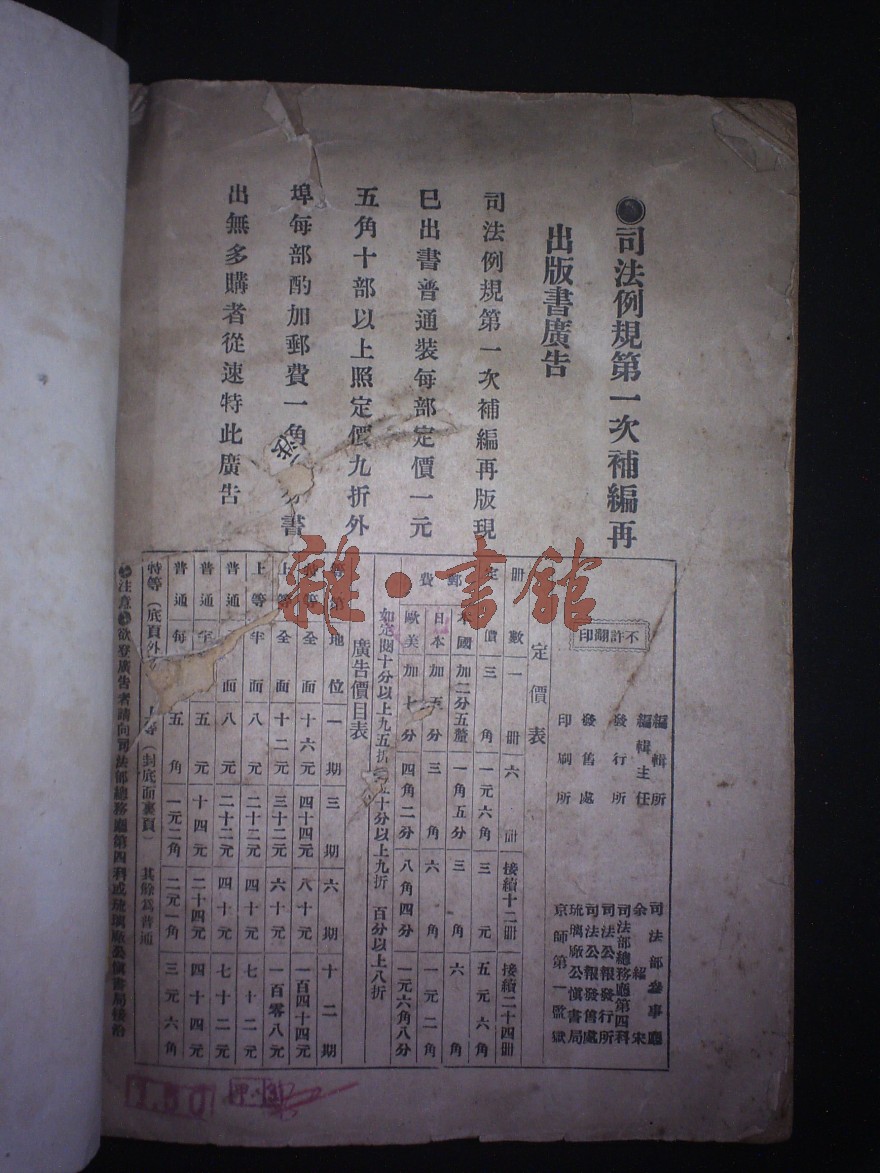 ●司法例規第一次補編再
出版書廣告
司法例規第一次補編再版現
已出書普通裝每部定價一元
五角十部以上照定價九折外
埠每部酌加郵費一角 書
出無多購者從速特此廣告
不許翻印
編輯所 司法部參事廳
編輯主任 余紹宋
發行所 司法部總務廳第四科
司法公報發行所
發售處 司法公報發售處
琉璃廠公慎書局
印刷所 京師第一監獄
定價表
冊數 一冊 六冊 接續十二冊 接續二十四冊
定價 三角 一元六角 三元 五元六角
郵費
本國加二分五釐 一角五分 三角 六角
日本加五分 三角 六角 一元二角
歐美加十分 四角二分 八角四分 一元六角八分
如定閱十分以上九五折 五十分以上九折 百分以上八折
廣告價目表
等第 地位 一期 三期 六期 十二期
特等 全面 十六元 四十四元 八十元 一百四十四元
上等 全面 十二元 三十二元 六十元 一百零八元
上等 半面 八元 二十二元 四十元 七十二元
普通 面 八元 二十二元 四十元 七十二元
普通 半 五元 十四元 二十四元 四十四元
普通 每 五角 一元二角 二元一角 三元六角
特等(底頁外 上等(封底面裏頁) 其餘為普通
●注意●欲登廣告者請向司法部總務廳第四科或琉璃廠公慎書局接洽
雜·書館